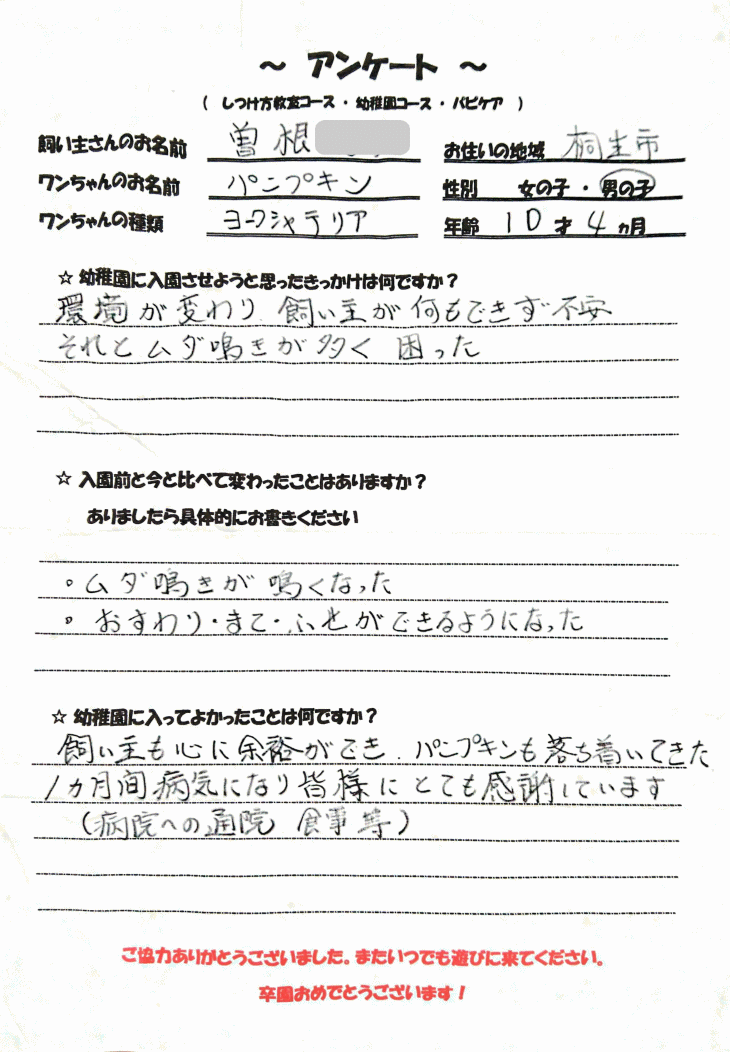 ～ アンケート ～
( しつけ方教室コース・幼稚園コース・パピケア )
飼い主さんのお名前 曽根 お住いの地域 桐生市
ワンちゃんのお名前 パンプキン 性別 女の子・男の子
ワンちゃんの種類 ヨークシャテリア 年齢 10才4ヵ月
☆ 幼稚園に入園させようと思ったきっかけは何ですか？
環境が変わり 飼い主が何もできず不安
それとムダ鳴きが多く 困った
☆ 入園前と今と比べて変わったことはありますか？
ありましたら具体的にお書きください
。ムダ鳴きが鳴くなった
。おすわり・まて・ふせができるようになった
☆ 幼稚園に入ってよかったことは何ですか？
飼い主も心に余裕ができ、パンプキンも落ち着いてきた
1ヵ月間病気になり皆様にとても感謝しています
(病院への通院 食事等)
ご協力ありがとうございました。またいつでも遊びに来てください。
卒園おめでとうございます！